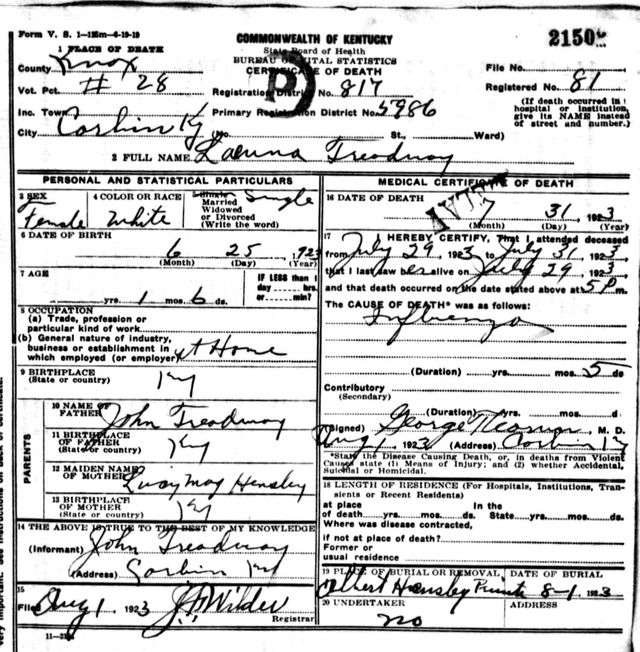 Form V. S. 1—125m—6-19-19
COMMONWEALTH OF KENTUCKY
State Board of Health
BUREAU OF VITAL STATISTICS
CERTIFICATE OF DEATH
2150
1 PLACE OF DEATH
County Knox
File No.
Vot. Pct. # 28
Registration District No. 817
Registered No. 81
Inc. Town
Primary Registration District No. 5986
(If death occurred in
hospital or institution,
give its NAME instead
of street and number.)
City Corbin Ky (No. St., Ward)
2 FULL NAME Treadway
PERSONAL AND STATISTICAL PARTICULARS
3 SEX
Female
4 COLOR OR RACE
White
Single
Married
Widowed
or Divorced
(Write the word)
Single
6 DATE OF BIRTH
6 25 , 1923
(Month) (Day) (Year)
7 AGE
yrs. 1 mos. 6 ds.
IF LESS than 1
day hrs.
or min?
8 OCCUPATION
(a) Trade, profession or
particular kind of work
(b) General nature of industry,
business or establishment in
which employed (or employer) at Home
9 BIRTHPLACE
(State or country) Ky
PARENTS
10 NAME OF
FATHER John Treadway
11 BIRTHPLACE
OF FATHER
(State or country) Ky
12 MAIDEN NAME
OF MOTHER May Hensley
13 BIRTHPLACE
OF MOTHER
(State or country) Ky
14 THE ABOVE IS TRUE TO THE BEST OF MY KNOWLEDGE
(Informant) John Treadway
(Address) Corbin Ky
15
Filed Aug 1, 1923 Wilder
Registrar
MEDICAL CERTIFICATE OF DEATH
16 DATE OF DEATH
7 31 , 1923
(Month) (Day) (Year)
17 I HEREBY CERTIFY, That I attended deceased
from July 29, 1923 to July 31, 1923
that I last saw her alive on July 29, 1923
and that death occurred on the date stated above at 5 P m.
The CAUSE OF DEATH* was as follows:
Influenza
(Duration) yrs. mos. 5 ds
Contributory
(Secondary)
(Duration) yrs. mos. d
(Signed) George M. D.
Aug 1 1923 (Address) Corbin Ky
*State the Disease Causing Death, or, in deaths from Violent
Causes state (1) Means of Injury; and (2) whether Accidental,
Suicidal or Homicidal.
18 LENGTH OF RESIDENCE (For Hospitals, Institutions, Transients or Recent Residents)
at place In the
of death yrs. mos. ds. State yrs. mos. ds.
Where was disease contracted,
if not at place of death?
Former or
usual residence
19 PLACE OF BURIAL OR REMOVAL
DATE OF BURIAL
Albert Hensley 8-1 1923
20 UNDERTAKER
no
ADDRESS